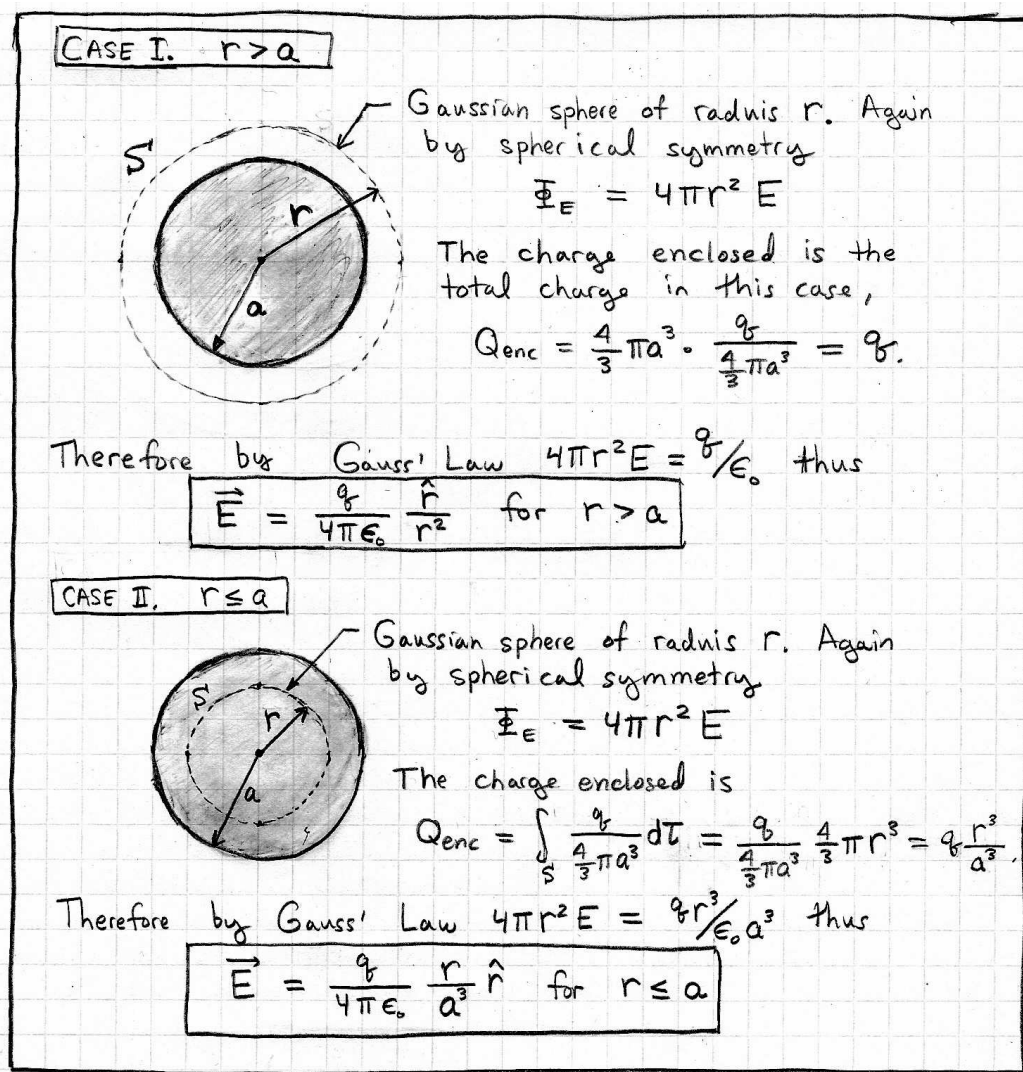 CASE I. r > a
Gaussian sphere of raduis r. Again
by spherical symmetry
Φ_E = 4πr² E
S
r
a
The charge enclosed is the
total charge in this case,
Q_enc = 4/3 πa³ · q/(4/3 πa³) = q.
Therefore by Gauss' Law 4πr²E = q/ε₀ thus
E⃗ = q/(4πε₀) r̂/r² for r > a
CASE II. r ≤ a
Gaussian sphere of raduis r. Again
by spherical symmetry
Φ_E = 4πr² E
S
r
a
The charge enclosed is
Q_enc = ∫_S q/(4/3 πa³) dτ = q/(4/3 πa³) 4/3 πr³ = q r³/a³.
Therefore by Gauss' Law 4πr²E = qr³/ε₀a³ thus
E⃗ = q/(4πε₀) r/a³ r̂ for r ≤ a